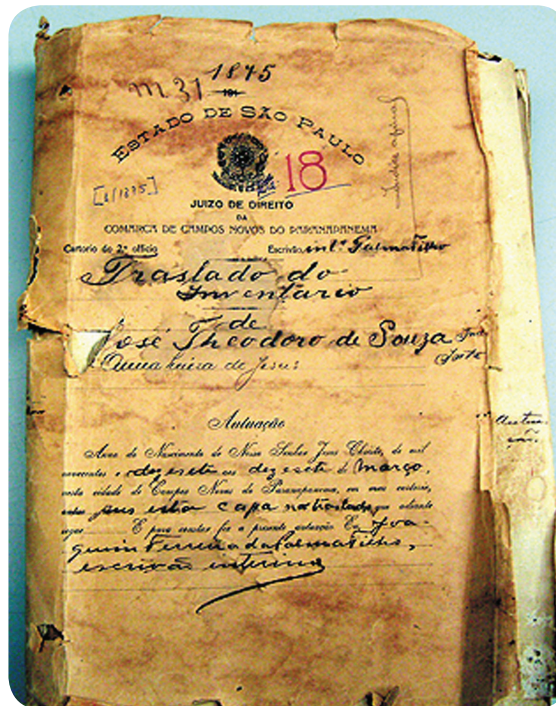 1875
m. 31
191
ESTADO DE SÃO PAULO
18
[6/1875]
JUIZO DE DIREITO
DA
COMARCA DE CAMPOS NOVOS DO PARANAPANEMA
Cartorio do 2º officio Escrivão, int.º Palma Filho
Traslado do
Inventario
de
José Theodoro de Souza
de Jesus
Autuação
Anno do Nascimento de Nosso Senhor Jesus Christo, de mil
novecentos e dezesete aos dezesete de Março,
nesta cidade de Campos Novos do Paranapanema, em meu cartorio,
esta capa no traslado que adiante
segue. E para constar fiz a presente autuação Eu, Joa-
quim Ferreira da Palma Filho,
escrivão interino